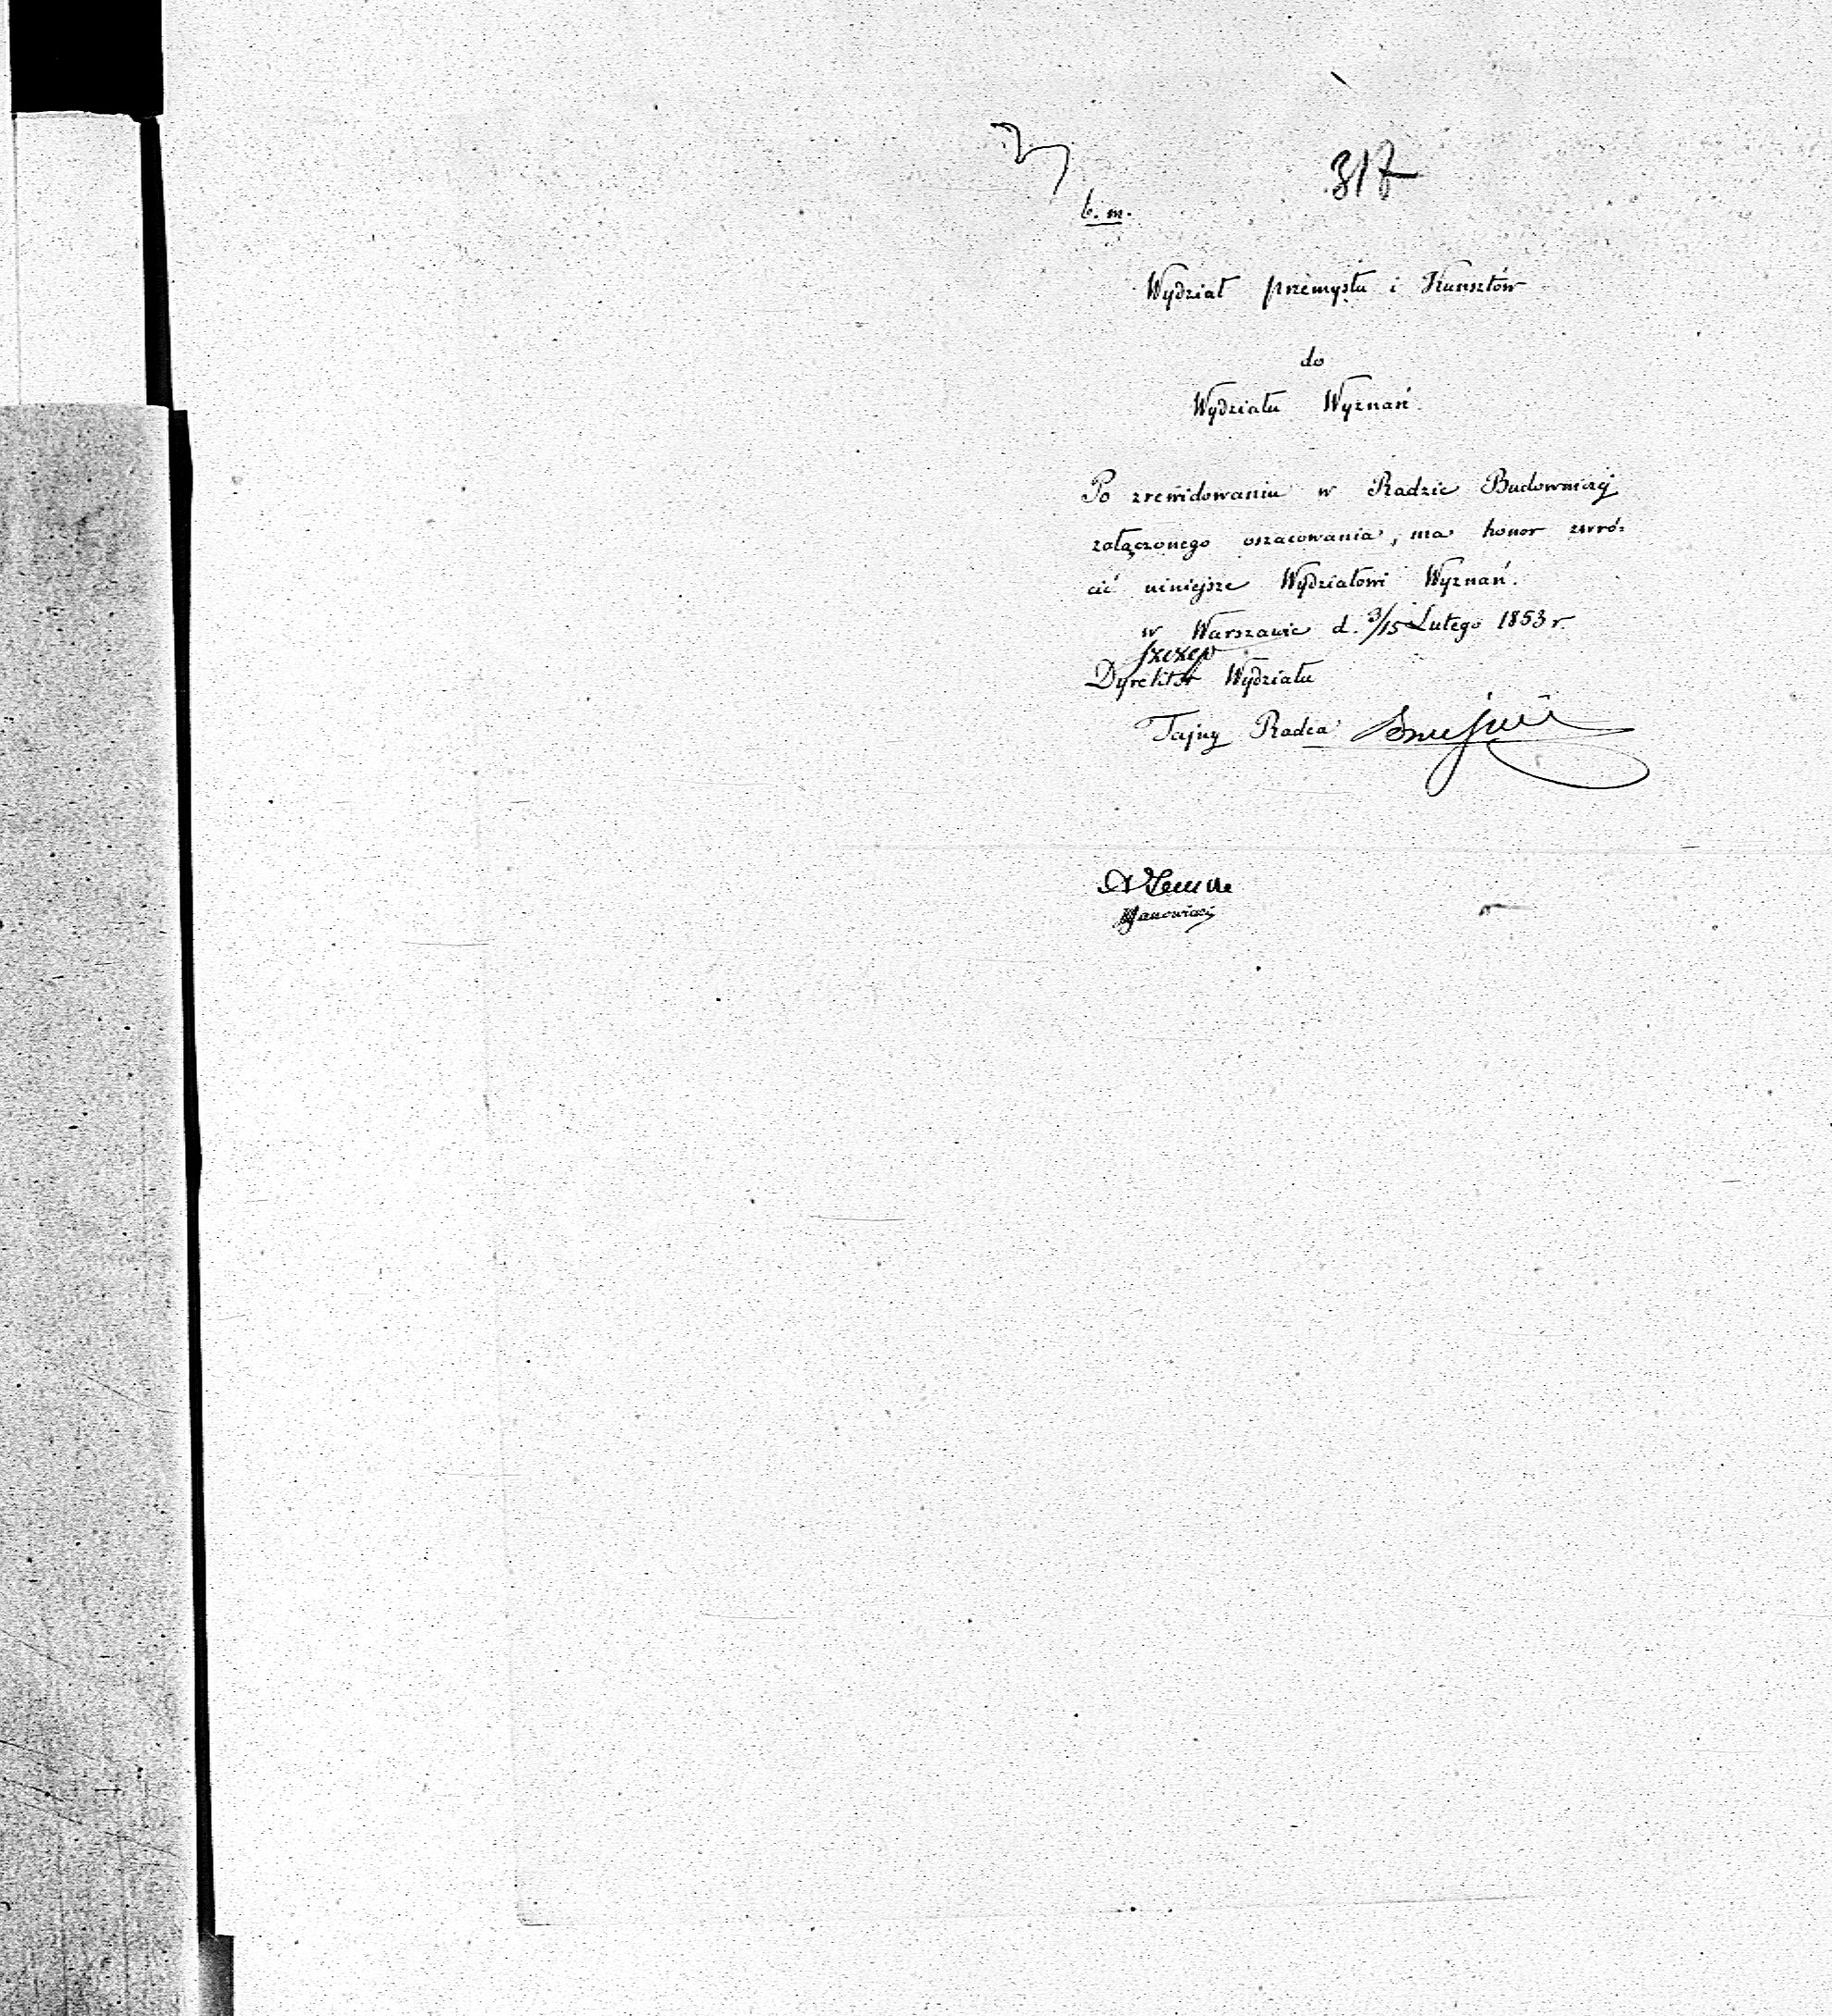 317
b. m.
Wydział przemysłu i Kunsztów
do
Wydziału Wyznań.
Po zrewidowaniu w Radzie Budowniczej
załączonego oszacowania, ma honor zwró=
cić niniejsze Wydziałowi Wyznań.
w Warszawie d. 3/15 Lutego 1853 r.
Dyrektor Wydziału
Tajny Radca